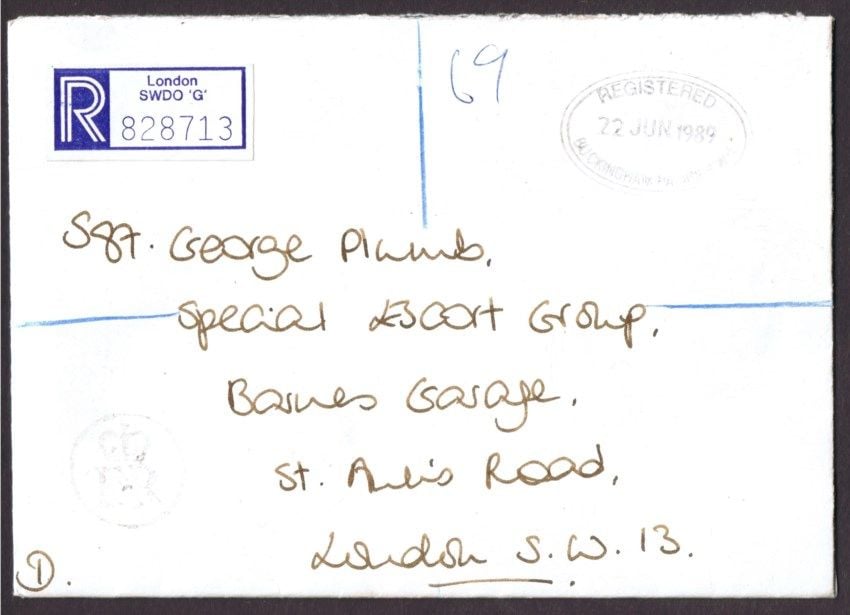 R
London
SWDO 'G'
828713
69
REGISTERED
22 JUN 1989
BUCKINGHAM
Sgt. George Plumb,
Special Escort Group,
Barnes Garage,
St. Road,
London S.W. 13.
D.